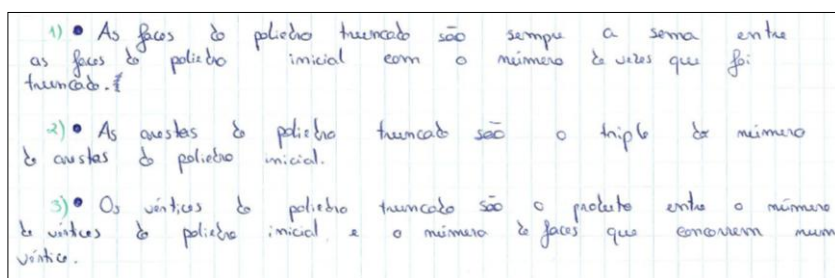 1) • As faces do poliedro truncado são sempre a soma entre
as faces do poliedro inicial com o número de vezes que foi
truncado.
2) • As arestas do poliedro truncado são o triplo do número
de arestas do poliedro inicial.
3) • Os vértices do poliedro truncado são o produto entre o número
de vértices do poliedro inicial e o número de faces que concorrem num
vértice.